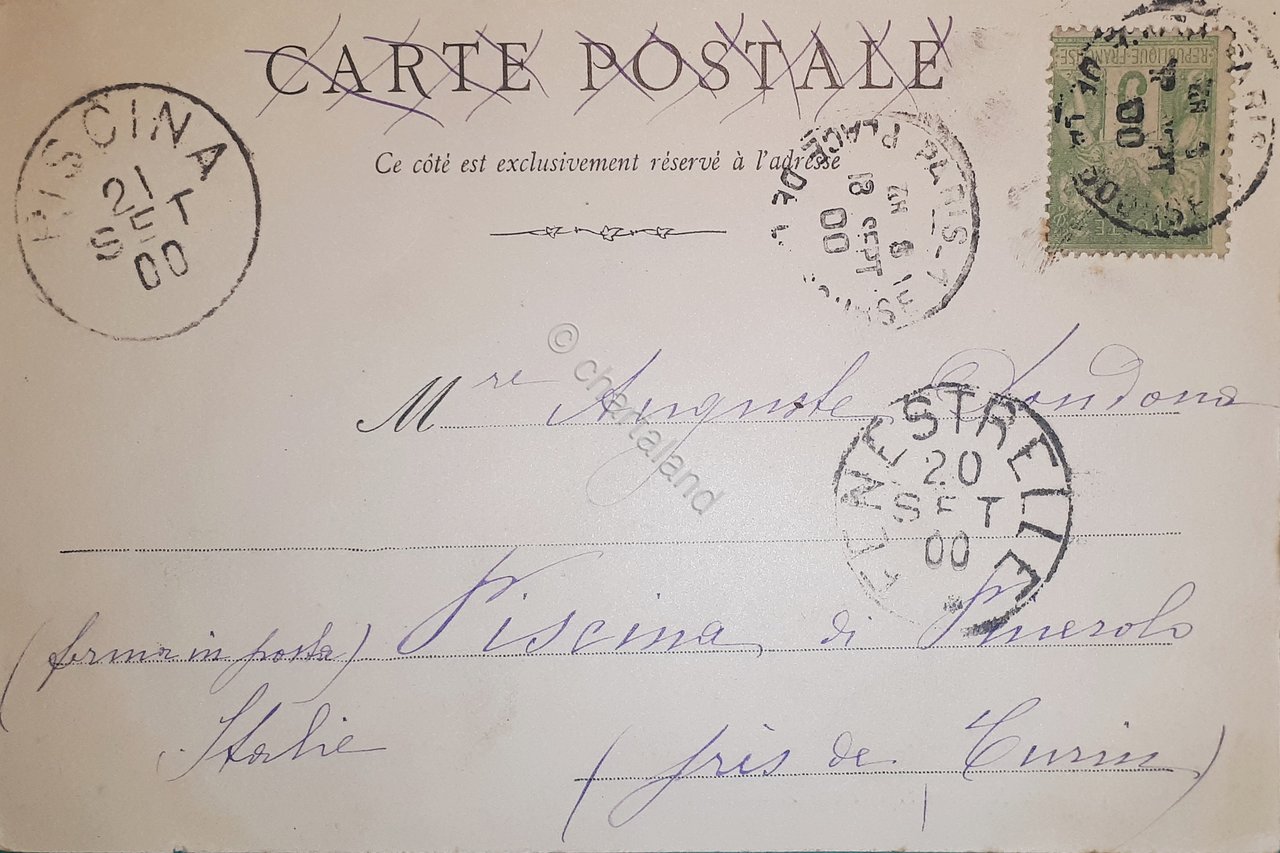 CARTE POSTALE
Ce côté est exclusivement réservé à l'adresse
PISCINA
21
SET
00
PARIS_7
PLACE DE L
BOURSE
8E
18
SEPT
00
RÉPUBLIQUE FRANÇAISE
5
00
© chartaland
M re Auguste
FENESTRELLE
20
SET
00
(ferma in posta) Piscina di Pinerolo
Italie (près de Turin)